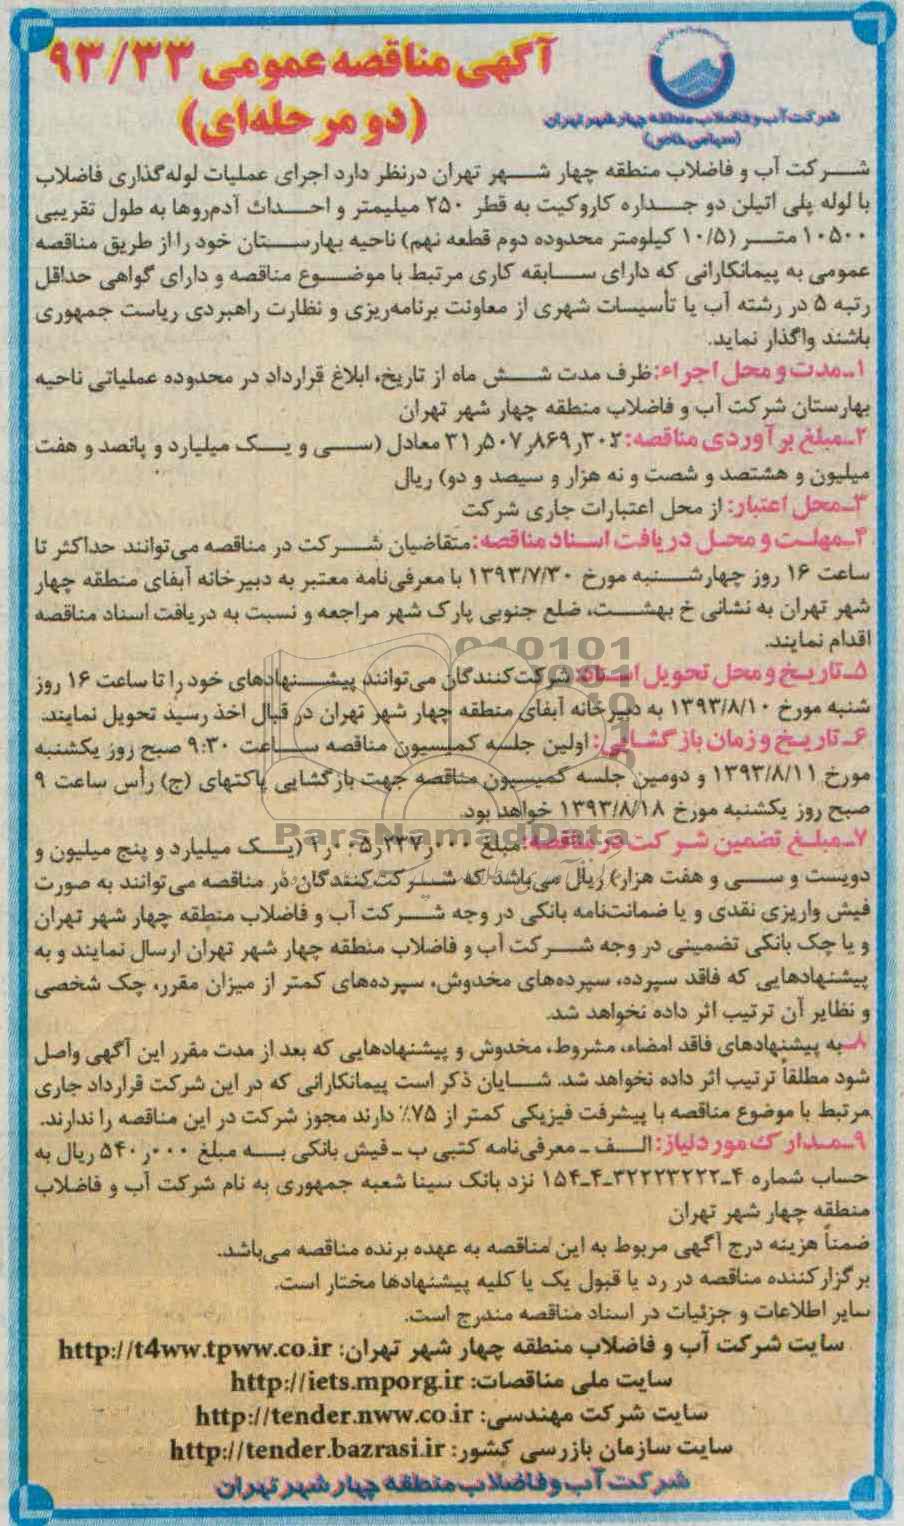 آگهی مناقصه عمومی ۹۳/۳۳
(دو مرحله‌ای)
شرکت آب و فاضلاب منطقه چهار شهر تهران
(سهامی خاص)
شرکت آب و فاضلاب منطقه چهار شهر تهران درنظر دارد اجرای عملیات لوله‌گذاری فاضلاب
با لوله پلی اتیلن دو جداره کاروکیت به قطر ۲۵۰ میلیمتر و احداث آدم‌روها به طول تقریبی
۱۰۵۰۰ متر (۱۰/۵ کیلومتر محدوده دوم قطعه نهم) ناحیه بهارستان خود را از طریق مناقصه
عمومی به پیمانکارانی که دارای سابقه کاری مرتبط با موضوع مناقصه و دارای گواهی حداقل
رتبه ۵ در رشته آب یا تأسیسات شهری از معاونت برنامه‌ریزی و نظارت راهبردی ریاست جمهوری
باشند واگذار نماید.
۱ـ مدت و محل اجراء: ظرف مدت شش ماه از تاریخ، ابلاغ قرارداد در محدوده عملیاتی ناحیه
بهارستان شرکت آب و فاضلاب منطقه چهار شهر تهران
۲ـ مبلغ برآوردی مناقصه: ۳۱٫۵۰۷٫۸۶۹٫۳۰۲ معادل (سی و یک میلیارد و پانصد و هفت
میلیون و هشتصد و شصت و نه هزار و سیصد و دو) ریال
۳ـ محل اعتبار: از محل اعتبارات جاری شرکت
۴ـ مهلت و محل دریافت اسناد مناقصه: متقاضیان شرکت در مناقصه می‌توانند حداکثر تا
ساعت ۱۶ روز چهارشنبه مورخ ۱۳۹۳/۷/۳۰ با معرفی‌نامه معتبر به دبیرخانه آبفای منطقه چهار
شهر تهران به نشانی خ بهشت، ضلع جنوبی پارک شهر مراجعه و نسبت به دریافت اسناد مناقصه
اقدام نمایند.
۵ـ تاریخ و محل تحویل اسناد: شرکت‌کنندگان می‌توانند پیشنهادهای خود را تا ساعت ۱۶ روز
شنبه مورخ ۱۳۹۳/۸/۱۰ به دبیرخانه آبفای منطقه چهار شهر تهران در قبال اخذ رسید تحویل نمایند.
۶ـ تاریخ و زمان بازگشایی: اولین جلسه کمیسیون مناقصه ساعت ۹:۳۰ صبح روز یکشنبه
مورخ ۱۳۹۳/۸/۱۱ و دومین جلسه کمیسیون مناقصه جهت بازگشایی پاکتهای (ج) رأس ساعت ۹
صبح روز یکشنبه مورخ ۱۳۹۳/۸/۱۸ خواهد بود.
ParsNamadData
۷ـ مبلغ تضمین شرکت در مناقصه: مبلغ ۱٫۰۰۵٫۲۳۷٫۰۰۰ (یک میلیارد و پنج میلیون و
دویست و سی و هفت هزار) ریال می‌باشد که شرکت‌کنندگان در مناقصه می‌توانند به صورت
فیش واریزی نقدی و یا ضمانت‌نامه بانکی در وجه شرکت آب و فاضلاب منطقه چهار شهر تهران
و یا چک بانکی تضمینی در وجه شرکت آب و فاضلاب منطقه چهار شهر تهران ارسال نمایند و به
پیشنهادهایی که فاقد سپرده، سپرده‌های مخدوش، سپرده‌های کمتر از میزان مقرر، چک شخصی
و نظایر آن ترتیب اثر داده نخواهد شد.
۸ـ به پیشنهادهای فاقد امضاء، مشروط، مخدوش و پیشنهادهایی که بعد از مدت مقرر این آگهی واصل
شود مطلقاً ترتیب اثر داده نخواهد شد. شایان ذکر است پیمانکارانی که در این شرکت قرارداد جاری
مرتبط با موضوع مناقصه با پیشرفت فیزیکی کمتر از ۷۵٪ دارند مجوز شرکت در این مناقصه را ندارند.
۹ـ مدارک موردنیاز: الف ـ معرفی‌نامه کتبی ب ـ فیش بانکی به مبلغ ۵۴۰٫۰۰۰ ریال به
حساب شماره ۴ـ۳۲۲۲۳۲۲۲ـ۴ـ۱۵۴ نزد بانک سینا شعبه جمهوری به نام شرکت آب و فاضلاب
منطقه چهار شهر تهران
ضمناً هزینه درج آگهی مربوط به این مناقصه به عهده برنده مناقصه می‌باشد.
برگزارکننده مناقصه در رد یا قبول یک یا کلیه پیشنهادها مختار است.
سایر اطلاعات و جزئیات در اسناد مناقصه مندرج است.
سایت شرکت آب و فاضلاب منطقه چهار شهر تهران: http://t4ww.tpww.co.ir
سایت ملی مناقصات: http://iets.mporg.ir
سایت شرکت مهندسی: http://tender.nww.co.ir
سایت سازمان بازرسی کشور: http://tender.bazrasi.ir
شرکت آب و فاضلاب منطقه چهار شهر تهران